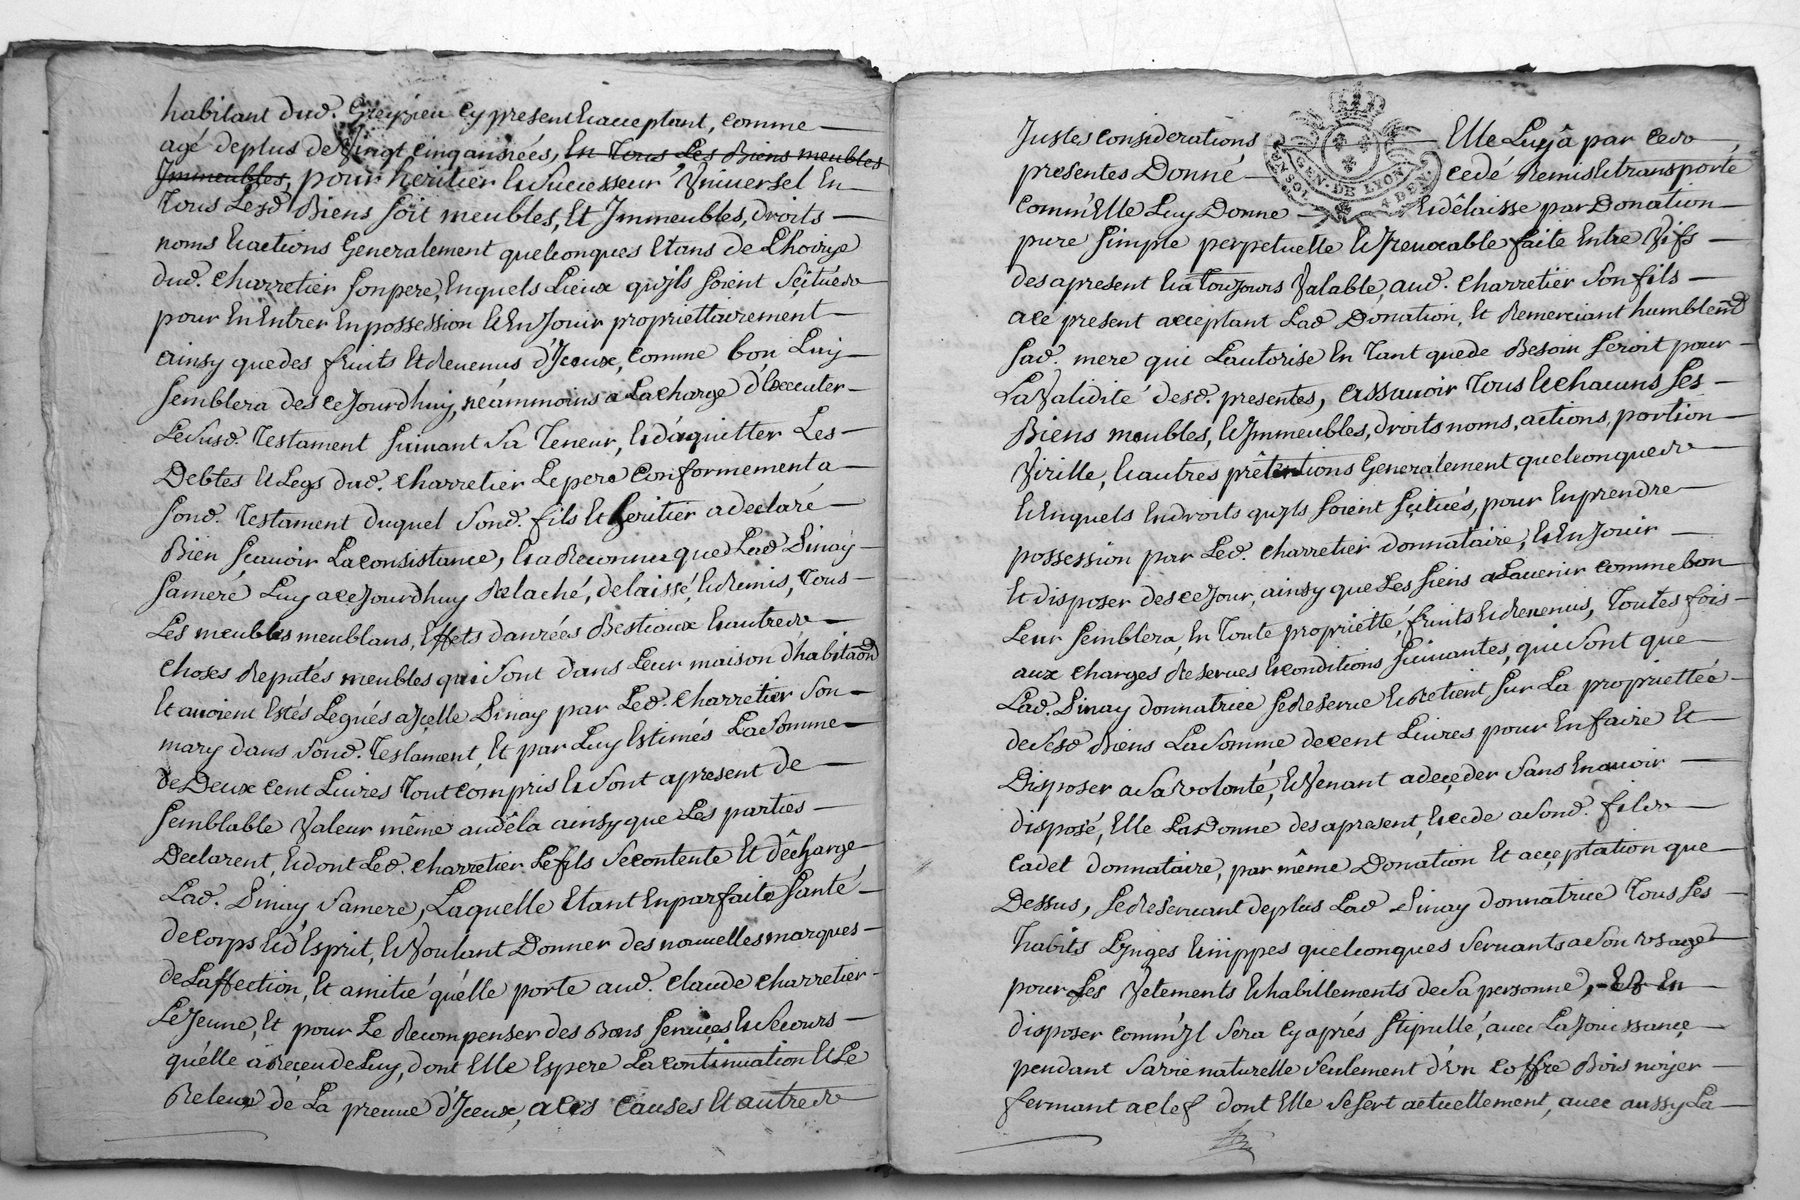 habitant dud. Greyzieu cy present et acceptant, comme
agé de plus de vingt cinq années, En Tous Les Biens meubles
Immeubles, pour heritier et Successeur Universel En
Tous Lesd Biens soit meubles, Et Immeubles, droits
noms et actions Generalement quelconques Etans de L'hoirye
dud. Charretier son pere, En quels Lieux quyls soient Scitués
pour En Entrer En possession et En Jouir propriettairement
ainsy que des fruits Et Revenus d'Iceux, comme bon Luy
semblera des ce Jourdhuy, néammoins a La charge d'Executer
Le susd. Testament suivant sa Teneur, et d'aquitter Les
Debtes et Legs dud. Charretier Le pere Conformement a
sond. Testament duquel sond. fils Et heritier a declaré
Bien scavoir La consistance, et a Reconnu que Lad Sinay
sa meré Luy a ce Jourdhuy Relaché, delaissé, et Remis, Tous
Les meubles meublans, Effets danrées Bestiaux et autres
choses Reputés meubles qui sont dans Leur maison d'habitaon
Et avoient Estés Legués a Icelle Sinay par Led. Charretier son
mary dans sond. Testament, Et par Luy Estimés La somme
de Deux cent Livres Tout compris et sont apresent de
semblable valeur même audêla ainsy que Les parties
Declarent, et dont Led. Charretier Le fils se contente Et dêcharge
Lad. Sinay sa mere, Laquelle Etant En parfaite santé
de corps et d'Esprit, et voulant Donner des nouvelles marques
de L'affection, Et amitié quélle porte aud. Claude Charretier
Le Jeune, Et pour Le Recompenser des Bons services et secours
quélle a Reçeu de Luy, dont Elle Espere La continuation Et Le
Releve de La preuve d'Iceux, a ces causes Et autres
Justes considerations Elle Luy â par ces
presentes Donné cedé Remis et transporté
comm'Elle Luy Donne et dêlaisse par Donation
pure simple perpetuelle et Irrevocable faite Entre Vifs
des apresent et a toujours valable, aud. Charretier son fils
a ce present acceptant Lad Donation, Et Remerciant humblemt
sad. mere qui L'autorise En Tant que de Besoin seroit pour
La validité desd. presentes, assavoir Tous et chacuns ses
Biens meubles, et Immeubles, droits noms, actions, portion
virille, et autres prêtentions Generalement quelconques
et En quels Endroits quyls soient scitués, pour En prendre
possession par Led. Charretier donnataire, et En Jouir
Et disposer des ce Jour, ainsy que Les siens a L'avenir comme bon
Leur semblera, En Toute proprietté, fruits et Revenus, Toutes fois
aux charges Reserves et conditions suivantes, qui sont que
Lad. Sinay donnatrice se Reserve et Retient sur La propriettée
de sesd Biens La somme de cent Livres pour En faire Et
Disposer a sa volonté, et venant a deçeder sans En avoir
disposé, Elle La Donne des apresent, et cede a sond. fils
cadet donnataire, par même Donation Et acçeptation que
Dessus, se Reservant de plus Lad Sinay donnatrice Tous ses
habits Lynges et nippes quelconques servants a son usage
pour Les vetements et habillements de sa personne, Et En
disposer comm'Il sera cy aprés stipullé, avec La Jouissançe
pendant sa vie naturelle seulement d'un coffre Bois noyer
fermant a clef dont Elle se sert actuellement, avec aussy La
GEN. DE LYON